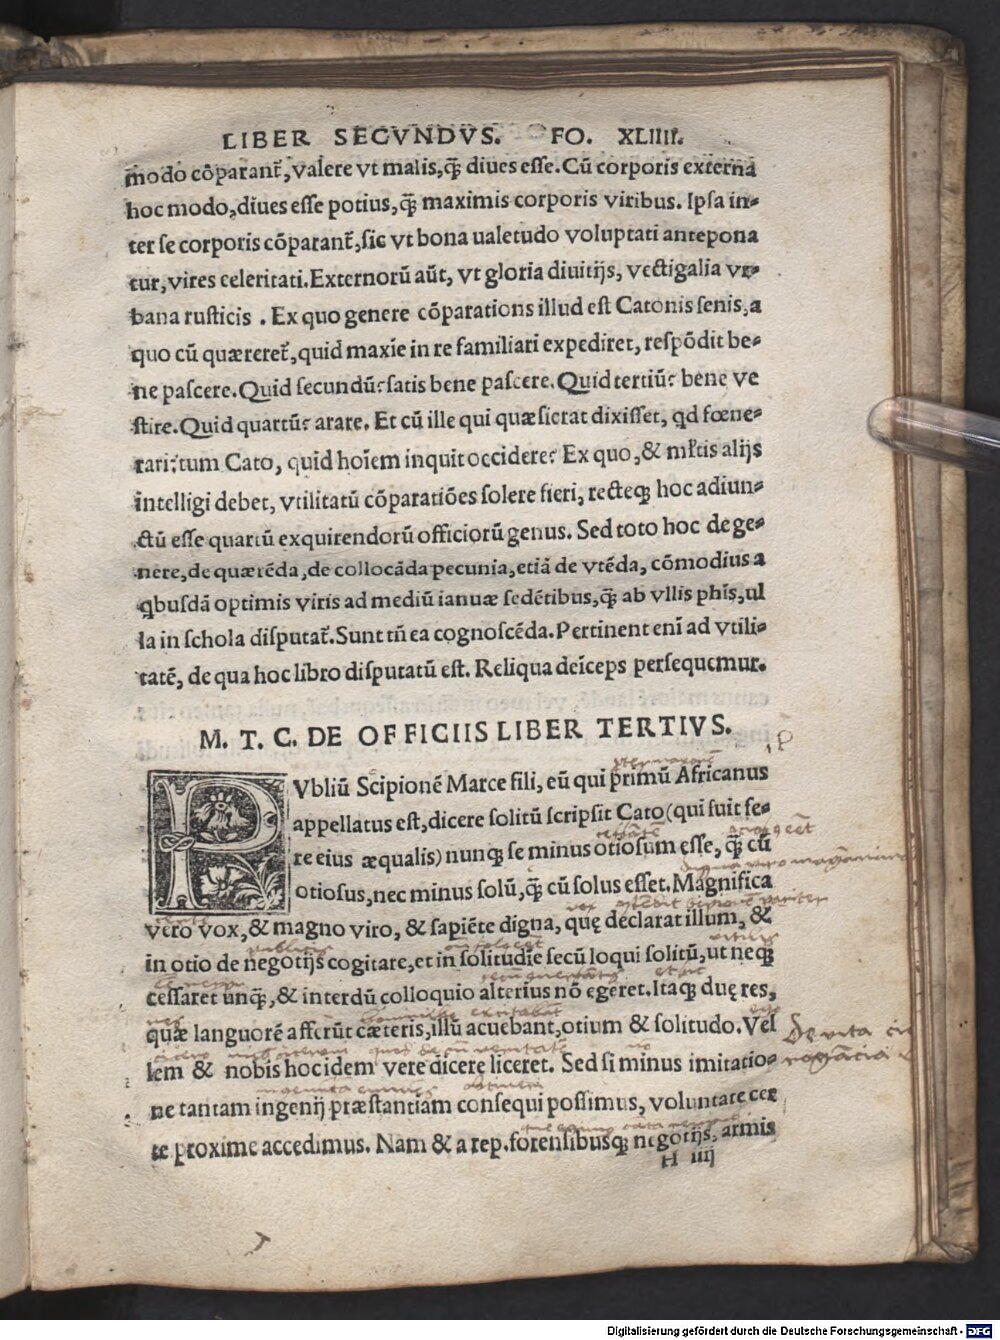 LIBER SECVNDVS. FO. XLIIII.
modo cõparant᷑, valere vt malis, q̃ diues esse. Cũ corporis externa
hoc modo, diues esse potius, q̃ maximis corporis viribus. Ipsa in-
ter se corporis cõparant᷑, sic vt bona ualetudo voluptati antepona
tur, vires celeritati. Externorũ aũt, vt gloria diuitijs, vectigalia vr-
bana rusticis . Ex quo genere cõparations illud est Catonis senis, a
quo cũ quæreret᷑, quid maxĩe in re familiari expediret, respõdit be-
ne pascere. Quid secundũ? satis bene pascere. Quid tertiũ? bene ve
stire. Quid quartũ? arare. Et cũ ille qui quæsierat dixisset, qd fœne-
rari? tum Cato, quid hoĩem inquit occidere? Ex quo, & ml̃tis alijs
intelligi debet, vtilitatũ cõparatiões solere fieri, recteq; hoc adiun-
ctũ esse quartũ exquirendorũ officiorũ genus. Sed toto hoc de ge-
nere, de quærẽda, de collocãda pecunia, etiã de vtẽda, cõmodius a
qbusdã optimis viris ad mediũ ianuæ sedẽtibus, q̃ ab vllis phis, ul
la in schola disputat᷑. Sunt tñ ea cognoscẽda. Pertinent enĩ ad vtili-
tatẽ, de qua hoc libro disputatũ est. Reliqua deĩceps persequemur.
M. T. C. DE OFFICIIS LIBER TERTIVS.
PVbliũ Scipionẽ Marce fili, eũ qui primũ Africanus
appellatus est, dicere solitũ scripsit Cato (qui fuit fe-
re eius æqualis) nunq̃ se minus otiosum esse, q̃ cũ
otiosus, nec minus solũ, q̃ cũ solus esset. Magnifica
vero vox, & magno viro, & sapiẽte digna, quę declarat illum, &
in otio de negotijs cogitare, et in solitudĩe secũ loqui solitũ, ut neq;
cessaret unq̃, & interdũ colloquio alterius nõ egeret. Itaq; duę res,
quæ languorẽ afferũt cæteris, illũ acuebant, otium & solitudo. Vel
lem & nobis hoc idem vere dicere liceret. Sed si minus imitatio-
ne tantam ingenij præstantiam consequi possimus, voluntate cer
te proxime accedimus. Nam & a rep. forensibusq; negotijs, armis
H iiij
Digitalisierung gefördert durch die Deutsche Forschungsgemeinschaft - DFG